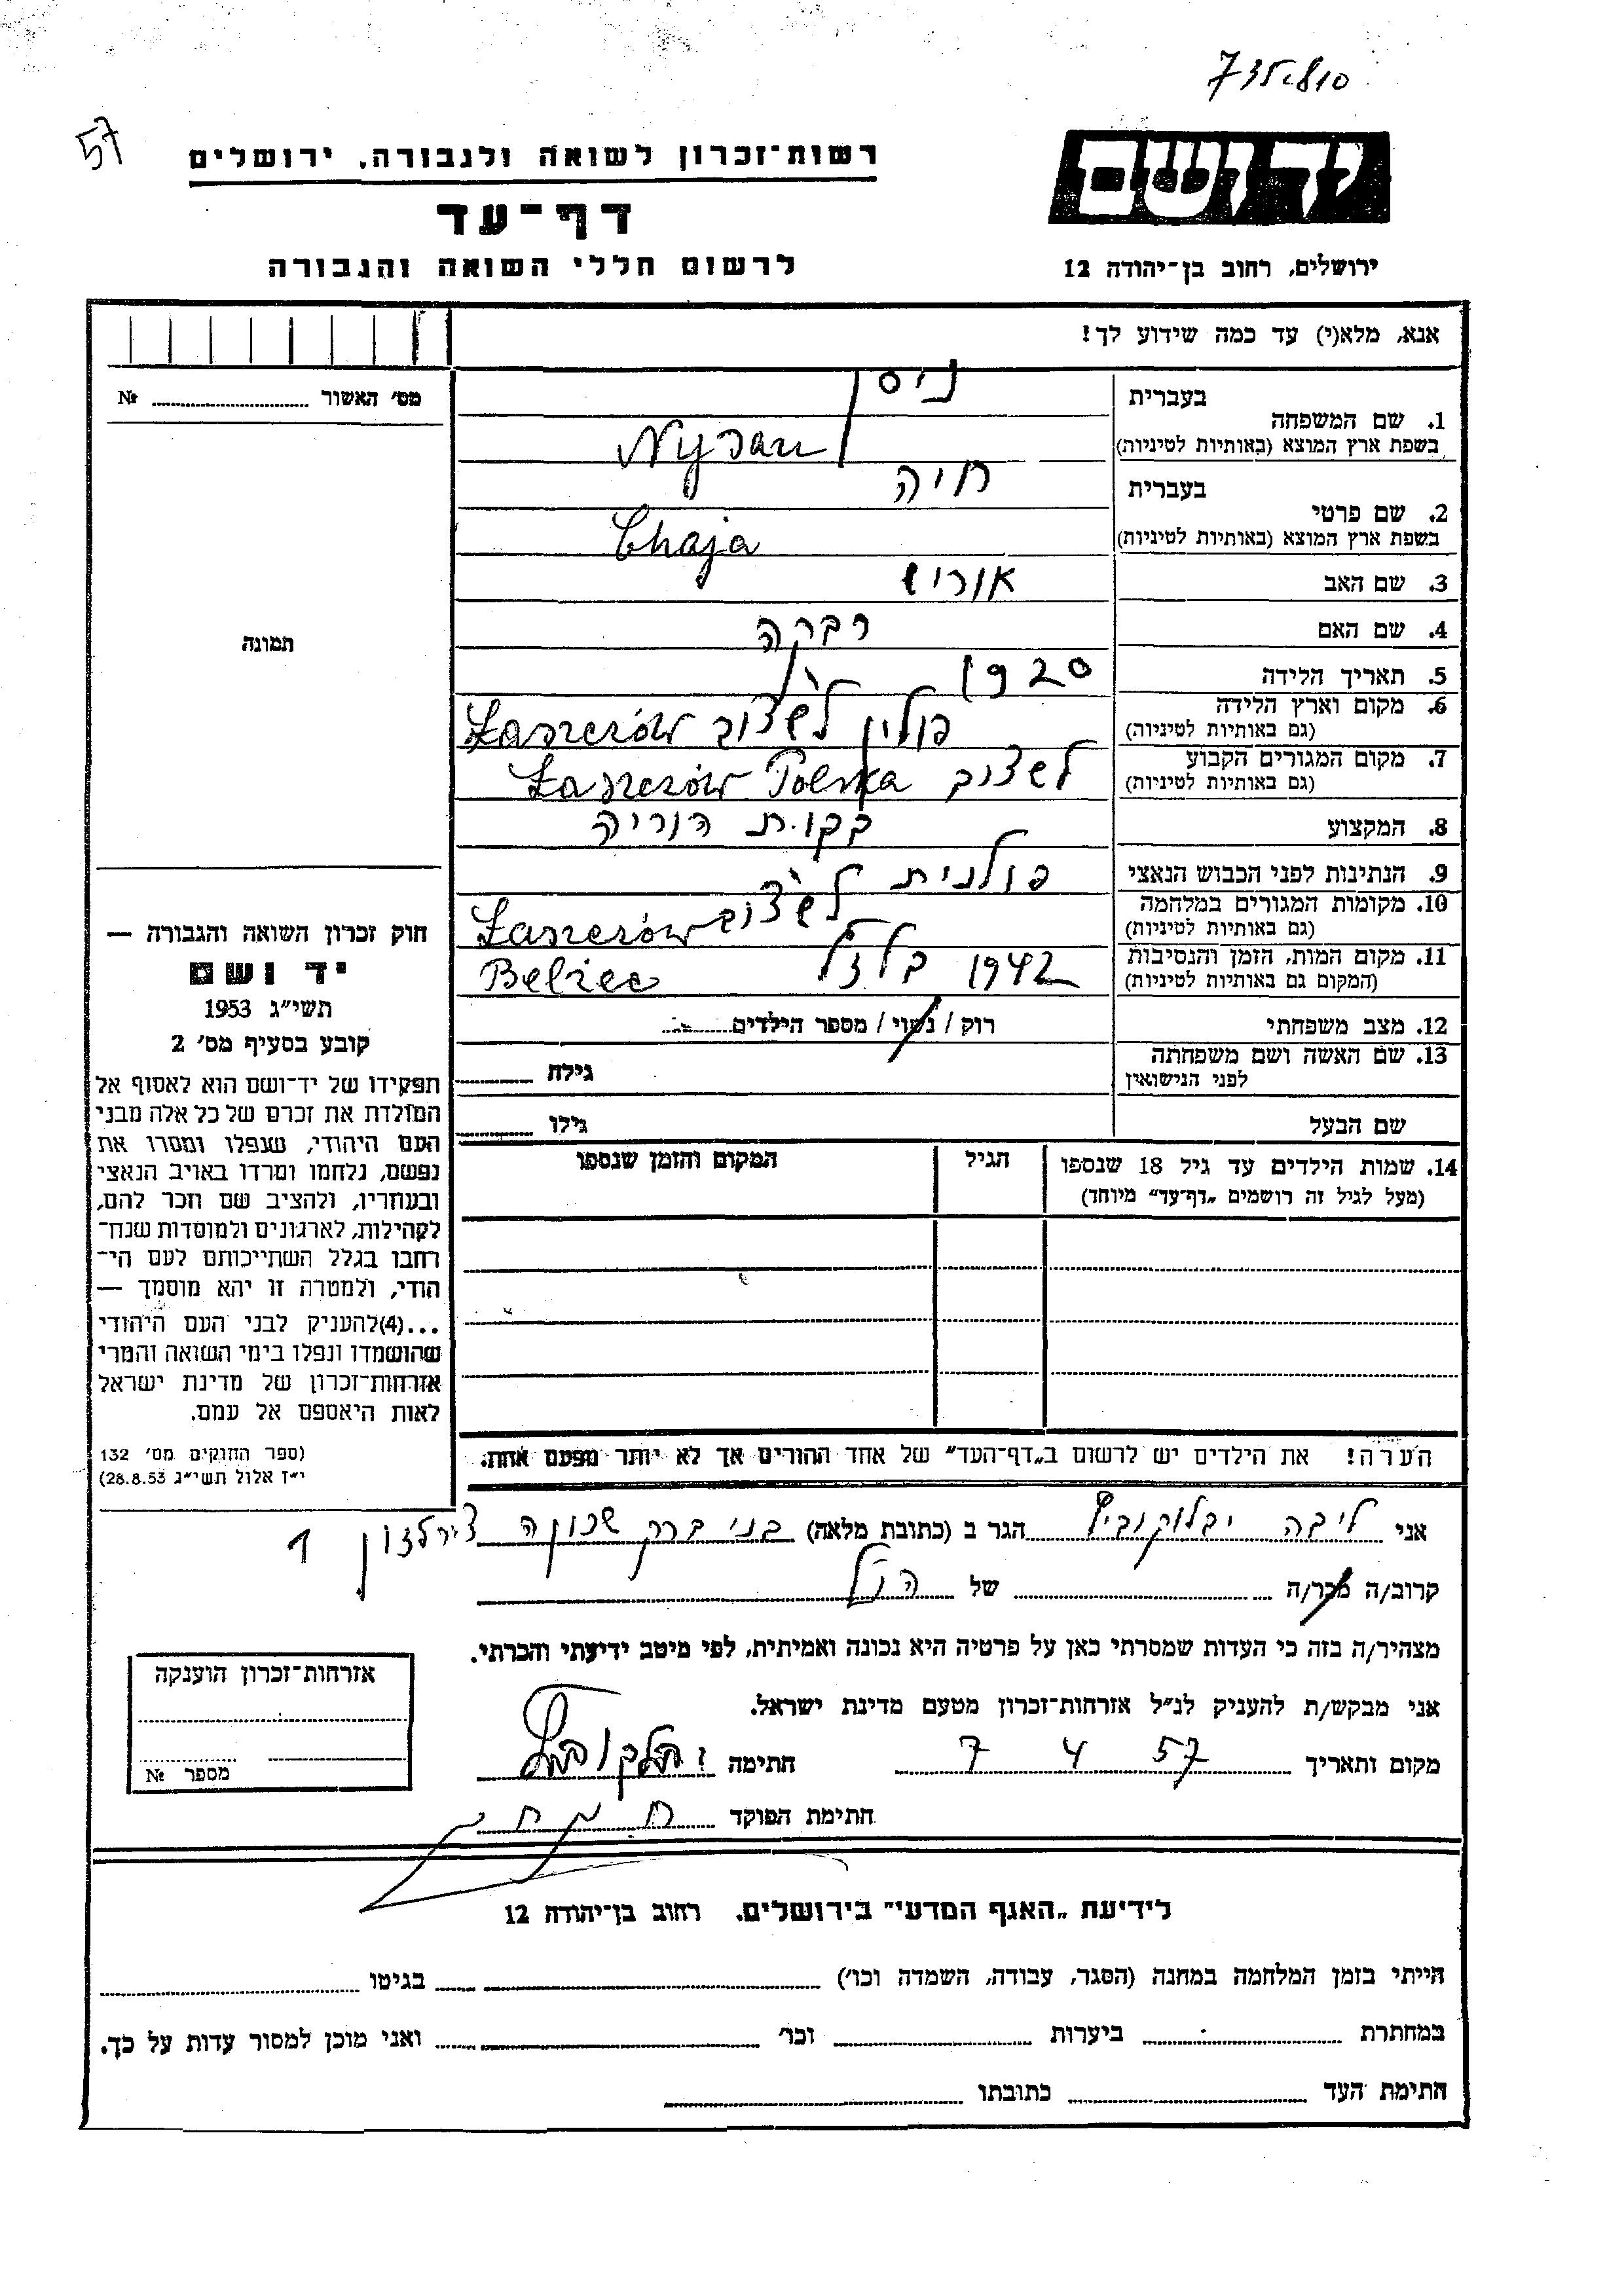 735810
57
יד ושם
רשות־זכרון לשואה ולגבורה, ירושלים
דף־עד
לרשום חללי השואה והגבורה
ירושלים, רחוב בן־יהודה 12
אנא, מלא(י) עד כמה שידוע לך!
מס' האשור № 
1. שם המשפחה
בעברית ניסן
בשפת ארץ המוצא (באותיות לטיניות) Nysan
2. שם פרטי
בעברית חיה
בשפת ארץ המוצא (באותיות לטיניות) Chaja
3. שם האב אוריש
4. שם האם רבקה
תמונה
5. תאריך הלידה 1920
6. מקום וארץ הלידה
(גם באותיות לטיניות) פולין לשצוב Łaszczów
7. מקום המגורים הקבוע
(גם באותיות לטיניות) לשצוב Łaszczów Polska
8. המקצוע הוריה
9. הנתינות לפני הכבוש הנאצי פולנית
10. מקומות המגורים במלחמה
(גם באותיות לטיניות) לשצוב Łaszczów
11. מקום המות, הזמן והנסיבות
(המקום גם באותיות לטיניות) 1942 בלזל Belzec
12. מצב משפחתי רוק / נשוי / מספר הילדים
13. שם האשה ושם משפחתה
לפני הנישואין גילה
שם הבעל גילו
14. שמות הילדים עד גיל 18 שנספו
(מעל לגיל זה רושמים „דף־עד" מיוחד)
הגיל
המקום והזמן שנספו
חוק זכרון השואה והגבורה —
יד ושם
תשי"ג 1953
קובע בסעיף מס' 2
תפקידו של יד־ושם הוא לאסוף אל
המולדת את זכרם של כל אלה מבני
העם היהודי, שנפלו ומסרו את
נפשם, נלחמו ומרדו באויב הנאצי
ובעוזריו, ולהציב שם וזכר להם,
לקהילות, לארגונים ולמוסדות שנח־
רבו בגלל השתייכותם לעם הי־
הודי, ולמטרה זו יהא מוסמך —
...(4)להעניק לבני העם היהודי
שהושמדו ונפלו בימי השואה והמרי
אזרחות־זכרון של מדינת ישראל
לאות היאספם אל עמם.
(ספר החוקים מס' 132
י"ז אלול תשי"ג 28.8.53)
הערה! את הילדים יש לרשום ב„דף־העד" של אחד ההורים אך לא יותר מפעם אחת.
אני ליבה יבלוקוביץ הגר ב (כתובת מלאה) בני ברק שכונה צירלזון 1
קרוב/ה מכר/ה של הנ"ל
מצהיר/ה בזה כי העדות שמסרתי כאן על פרטיה היא נכונה ואמיתית, לפי מיטב ידיעתי והכרתי.
אני מבקש/ת להעניק לנ"ל אזרחות־זכרון מטעם מדינת ישראל.
מקום ותאריך 7 4 57 חתימה
חתימת הפוקד
אזרחות־זכרון הוענקה
מספר №
לידיעת „האגף המדעי" בירושלים. רחוב בן־יהודה 12
הייתי בזמן המלחמה במחנה (הסגר, עבודה, השמדה וכו') בגיטו
במחתרת ביערות וכו' ואני מוכן למסור עדות על כך.
חתימת העד כתובתו